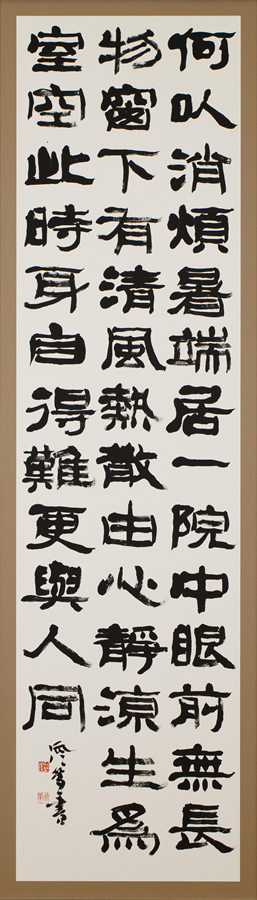 何以消煩暑端居一院中眼前無長
物窗下有清風熱散由心靜涼生為
室空此時身自得難更與人同
書